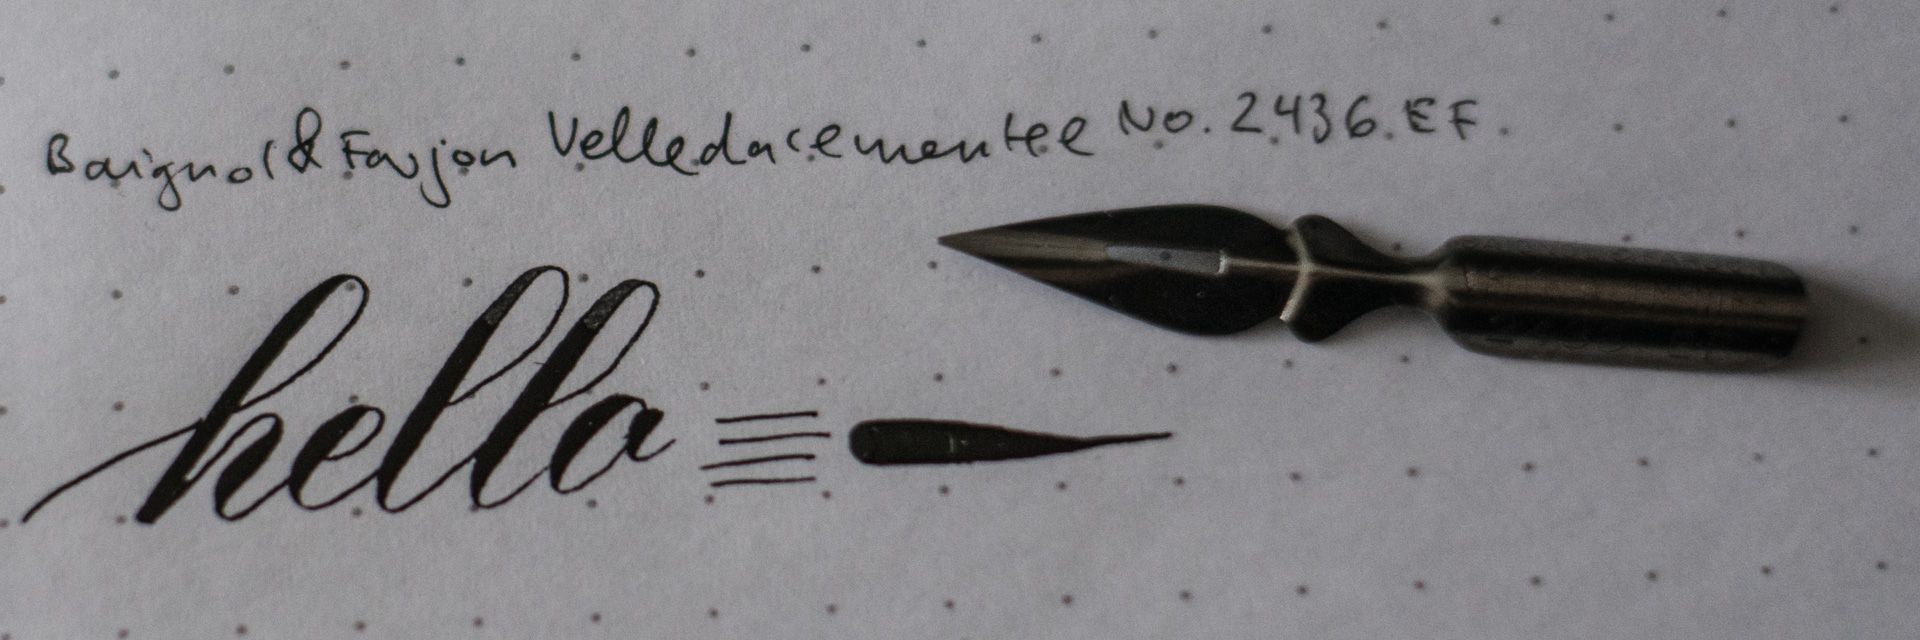 Baignol & Farjon Velledacementee No. 2436 EF
hello